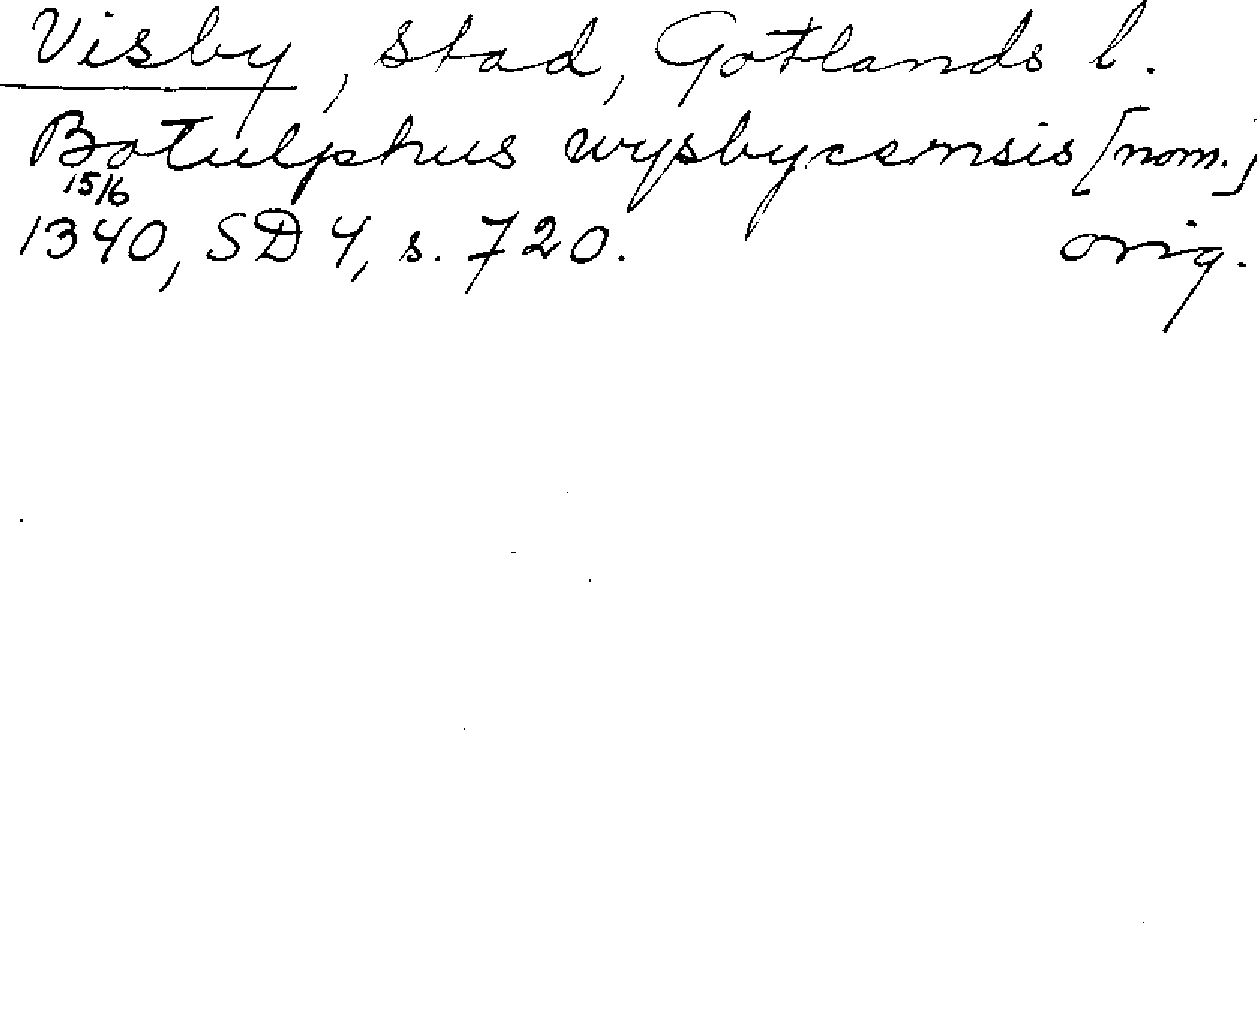 Visby, stad, Gotlands l.
Botulphus wysbycensis [nom.]
15/6
1340, SD 4, s. 720. orig.